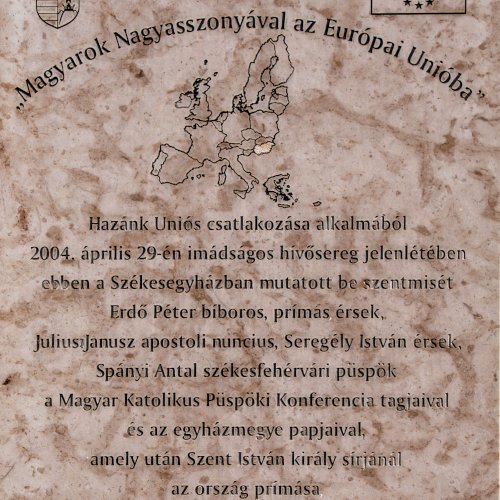 „Magyarok Nagyasszonyával az Európai Unióba”
Hazánk Uniós csatlakozása alkalmából
2004. április 29-én imádságos hívősereg jelenlétében
ebben a Székesegyházban mutatott be szentmisét
Erdő Péter bíboros, prímás érsek,
Julius Janusz apostoli nuncius, Seregély István érsek,
Spányi Antal székesfehérvári püspök
a Magyar Katolikus Püspöki Konferencia tagjaival
és az egyházmegye papjaival,
amely után Szent István király sírjánál
az ország prímása